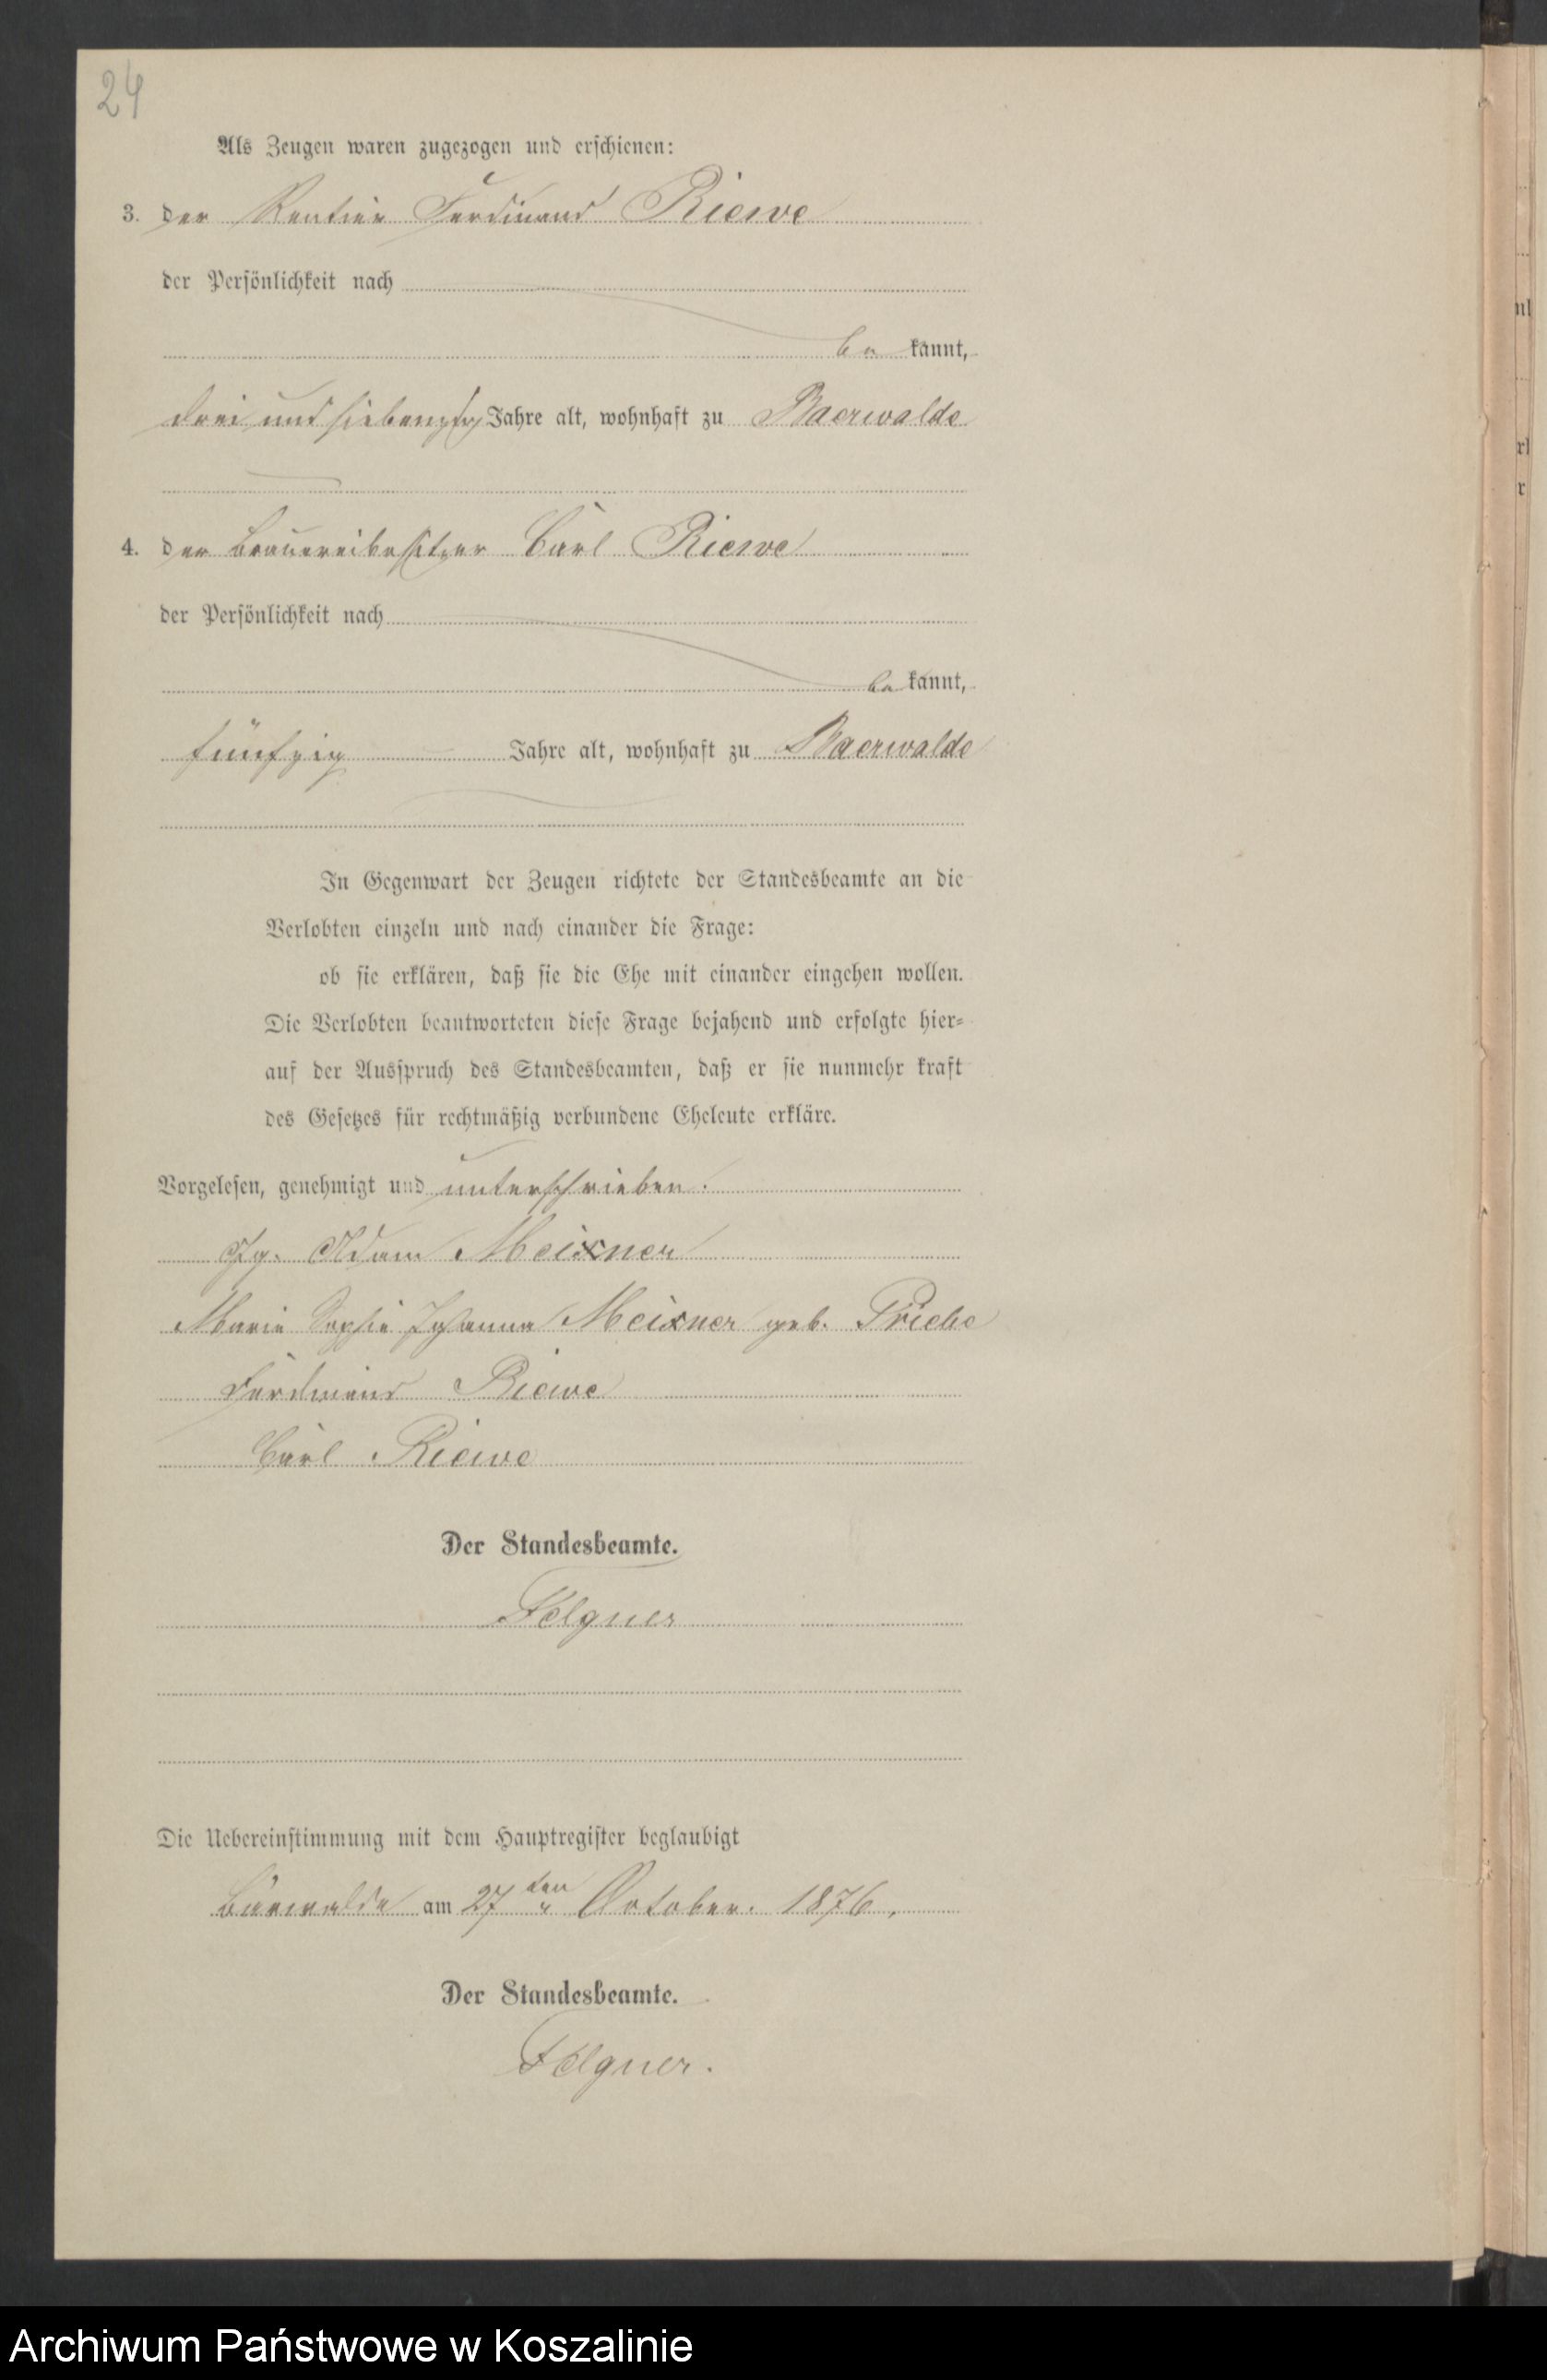 24
Als Zeugen waren zugezogen und erschienen:
3. der Rentier Ferdinand Riewe
der Persönlichkeit nach
be kannt,
drei und siebenzig Jahre alt, wohnhaft zu Baerwalde
4. der Brauereibesitzer Carl Riewe
der Persönlichkeit nach
be kannt,
fünfzig Jahre alt, wohnhaft zu Baerwalde
In Gegenwart der Zeugen richtete der Standesbeamte an die
Verlobten einzeln und nach einander die Frage:
ob sie erklären, daß sie die Ehe mit einander eingehen wollen.
Die Verlobten beantworteten diese Frage bejahend und erfolgte hier-
auf der Ausspruch des Standesbeamten, daß er sie nunmehr kraft
des Gesetzes für rechtmäßig verbundene Eheleute erkläre.
Vorgelesen, genehmigt und unterschrieben.
Adam Meixner
Marie Sophie Johanna Meixner geb. Priebe
Ferdinand Riewe
Carl Riewe
Der Standesbeamte.
Felgner
Die Uebereinstimmung mit dem Hauptregister beglaubigt
Bärwalde am 27 ten October. 1876.
Der Standesbeamte.
Felgner.
Archiwum Państwowe w Koszalinie